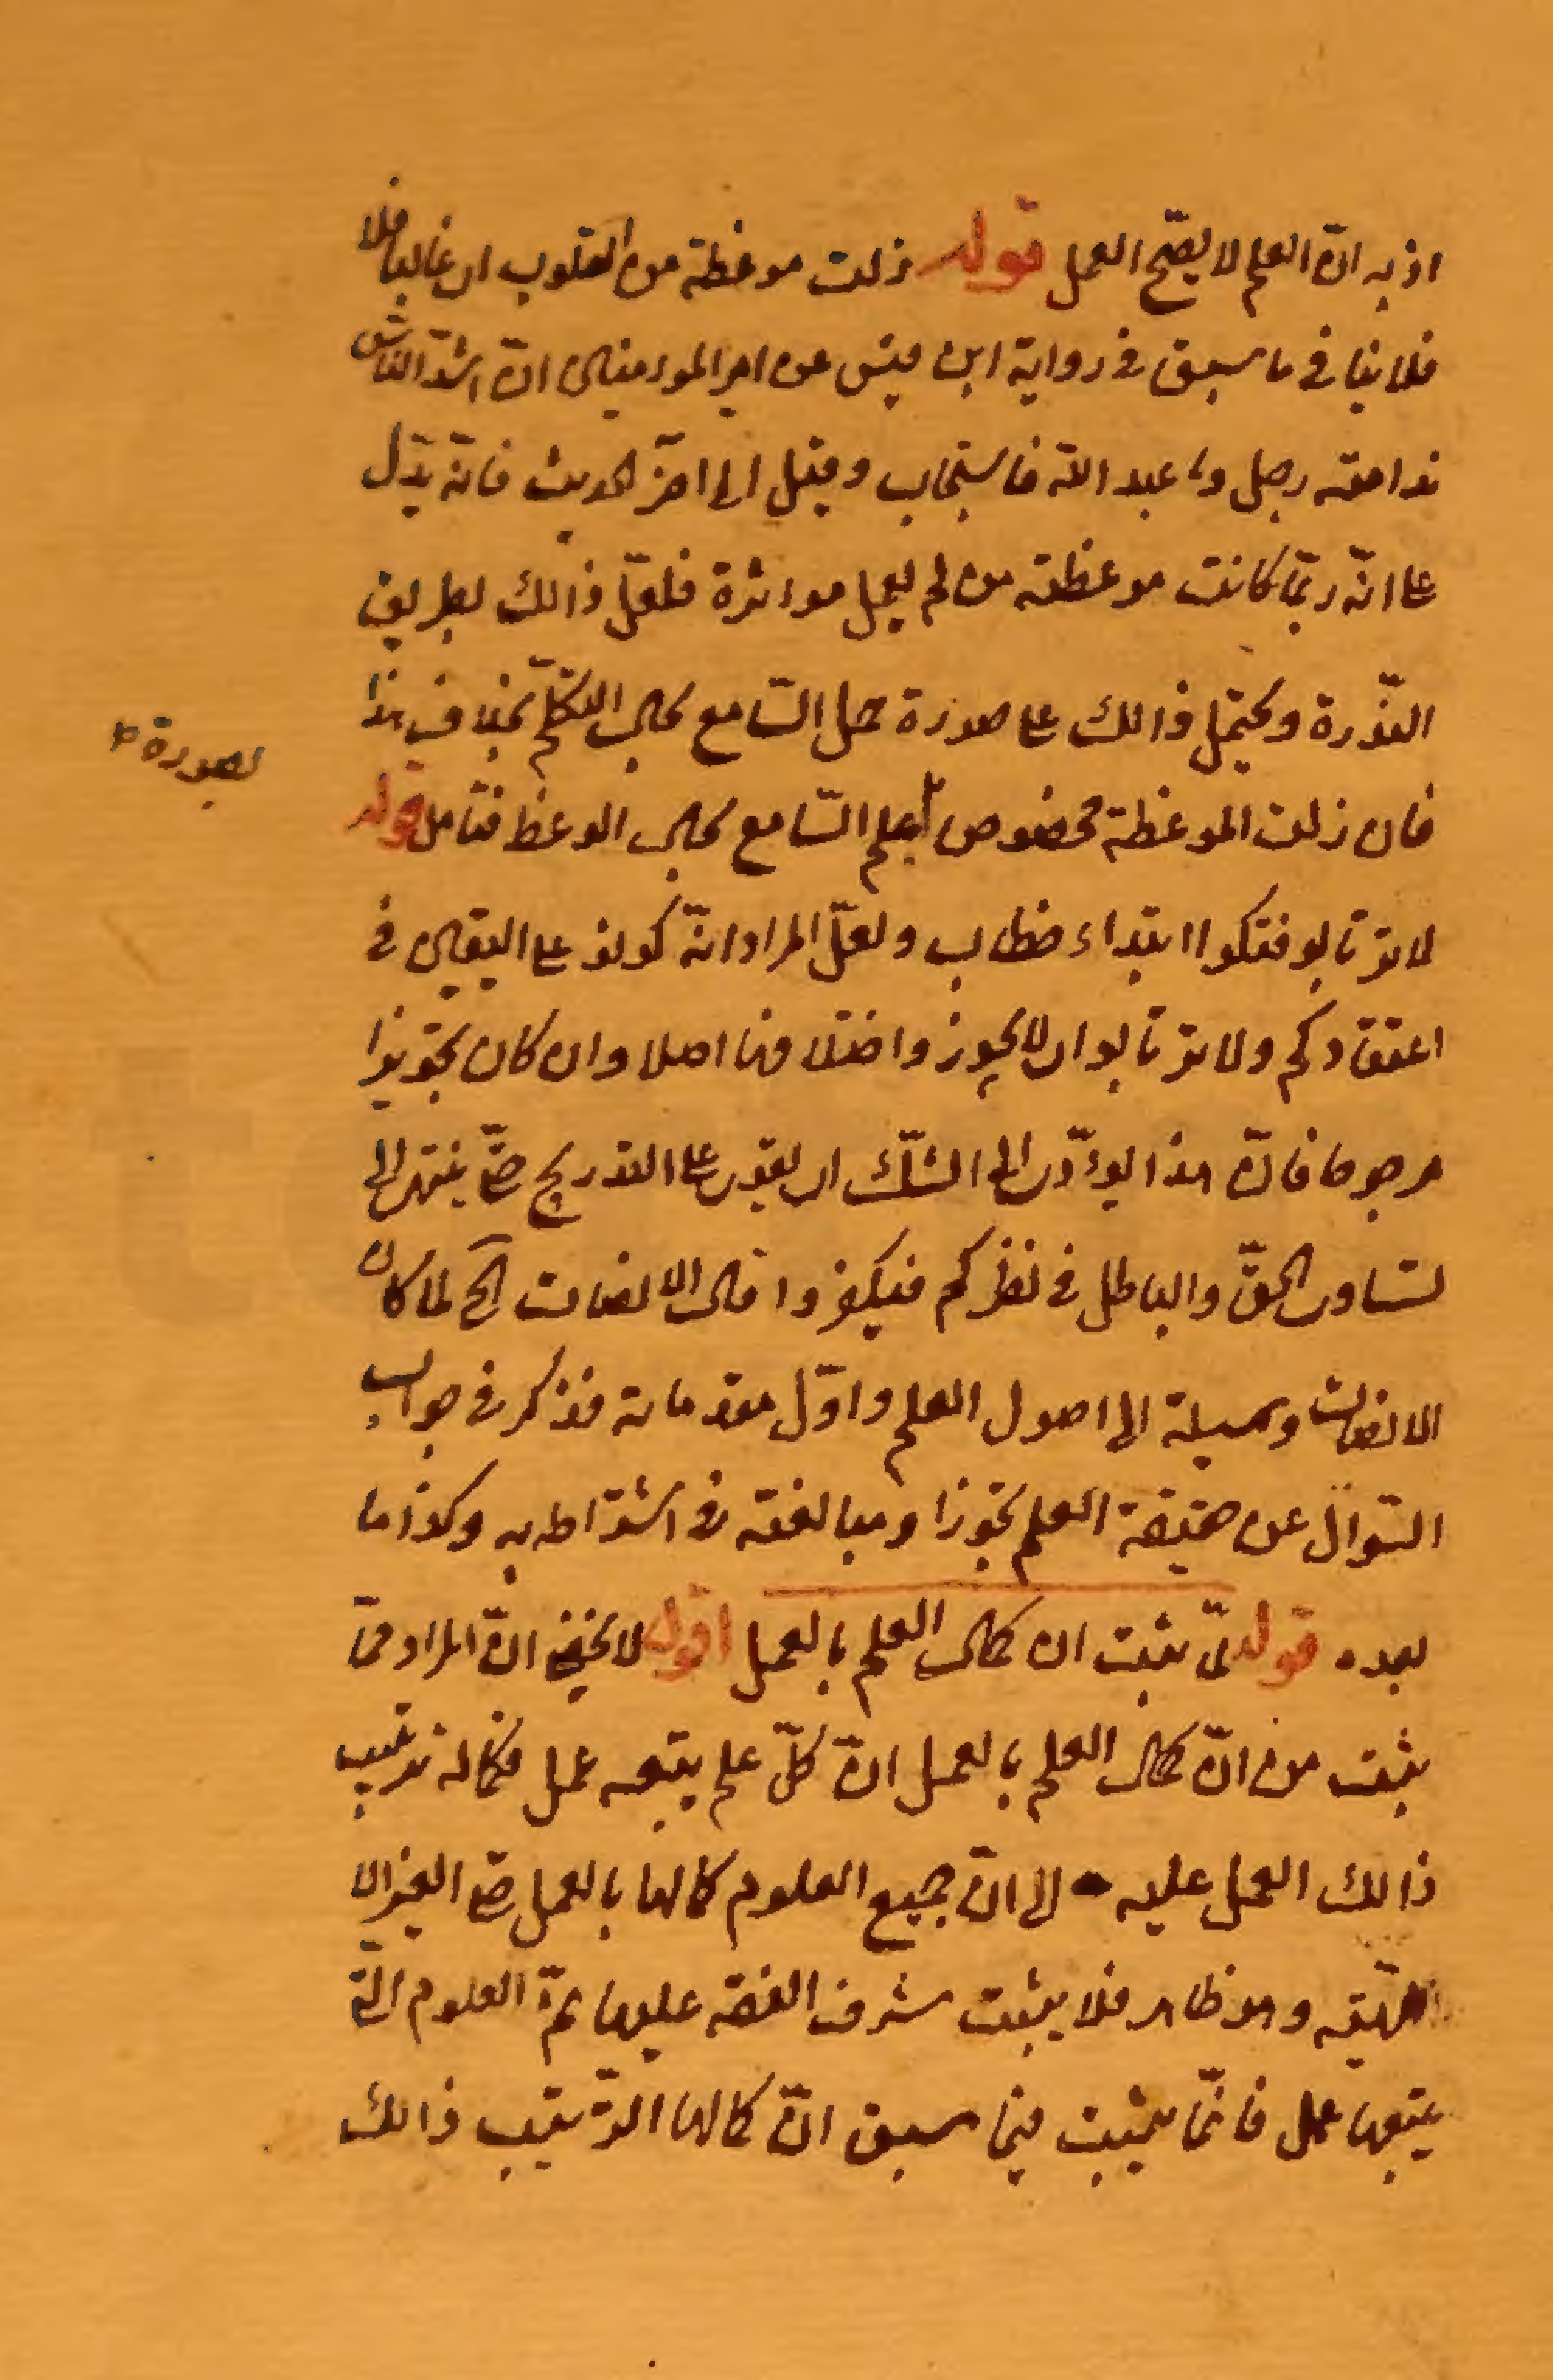 اذ به انّ العلم لا يصّح العمل قوله زلت موعظة من القلوب اى غالبا فلا
فلا ينافى ما سبق فى رواية ابن قيس عن امير المؤمنين انّ اشدّ الناس
ندامة رجل دعا عبد الله فاستجاب وقبل الى اخر الحديث فانّه يدّل
على انّه ربّما كانت موعظة من لم يعمل مؤثرة فلعلّ ذالك بطريق
النّدرة ويحتمل ذالك على صورة جهل السّامع بحال المتكلّم بخلاف هذا
فان زلت الموعظة مخصوص بعلم السّامع بحال الوعظ فتامل قوله
بصورة
لا ترتابو فتكوا ابتداء خطاب ولعلّ المراد انّه كونو على اليقين فى
اعتقادكم ولا ترتابو اى لا تجوزوا خلافها اصلا وان كان تجويزا
مرجوحا فانّ هذا يؤدّى الى الشّك اى يقوى على التدريج حتّى ينتهى الى
تساوى الحقّ والباطل فى نظركم فيكفروا قال الانصات الخ لما كان
الانصات وسيلة الى اصول العلم واوّل مقدماته فذكر فى جواب
السّوال عن حقيقة العلم تجوزا ومبالغة فى اشتراطه به وكذا ما
بعده قوله لمّا ثبت ان كمال العلم بالعمل اقول لا يخفى انّ المراد ممّا
يثبت من انّ كمال العلم بالعمل انّ كلّ علم يتبعه عمل فكماله ترتيب
ذالك العمل عليه لا انّ جميع العلوم كمالها بالعمل حتى الغير الا
لهيّه وهو ظاهر فلا يثبت شرف الفقه عليها ثمّ العلوم الّتى
يتبعها عمل فانّما يثبت فيما سبق انّ كمالها الترتيب ذالك